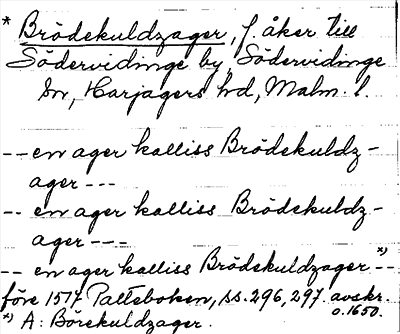 * Brödekuldzager, f. åker till
Södervidinge by, Södervidinge
sn, Harjagers hd, Malm. l.
-- en ager kalliss Brödekuldz-
ager ---
-- en ager kalliss Brödekuldz-
ager ---
-- en ager kalliss Brödekuldzager *) --
före 1517 Palteboken, ss. 296, 297. avskr.
o. 1650.
*) A: Börekuldzager.